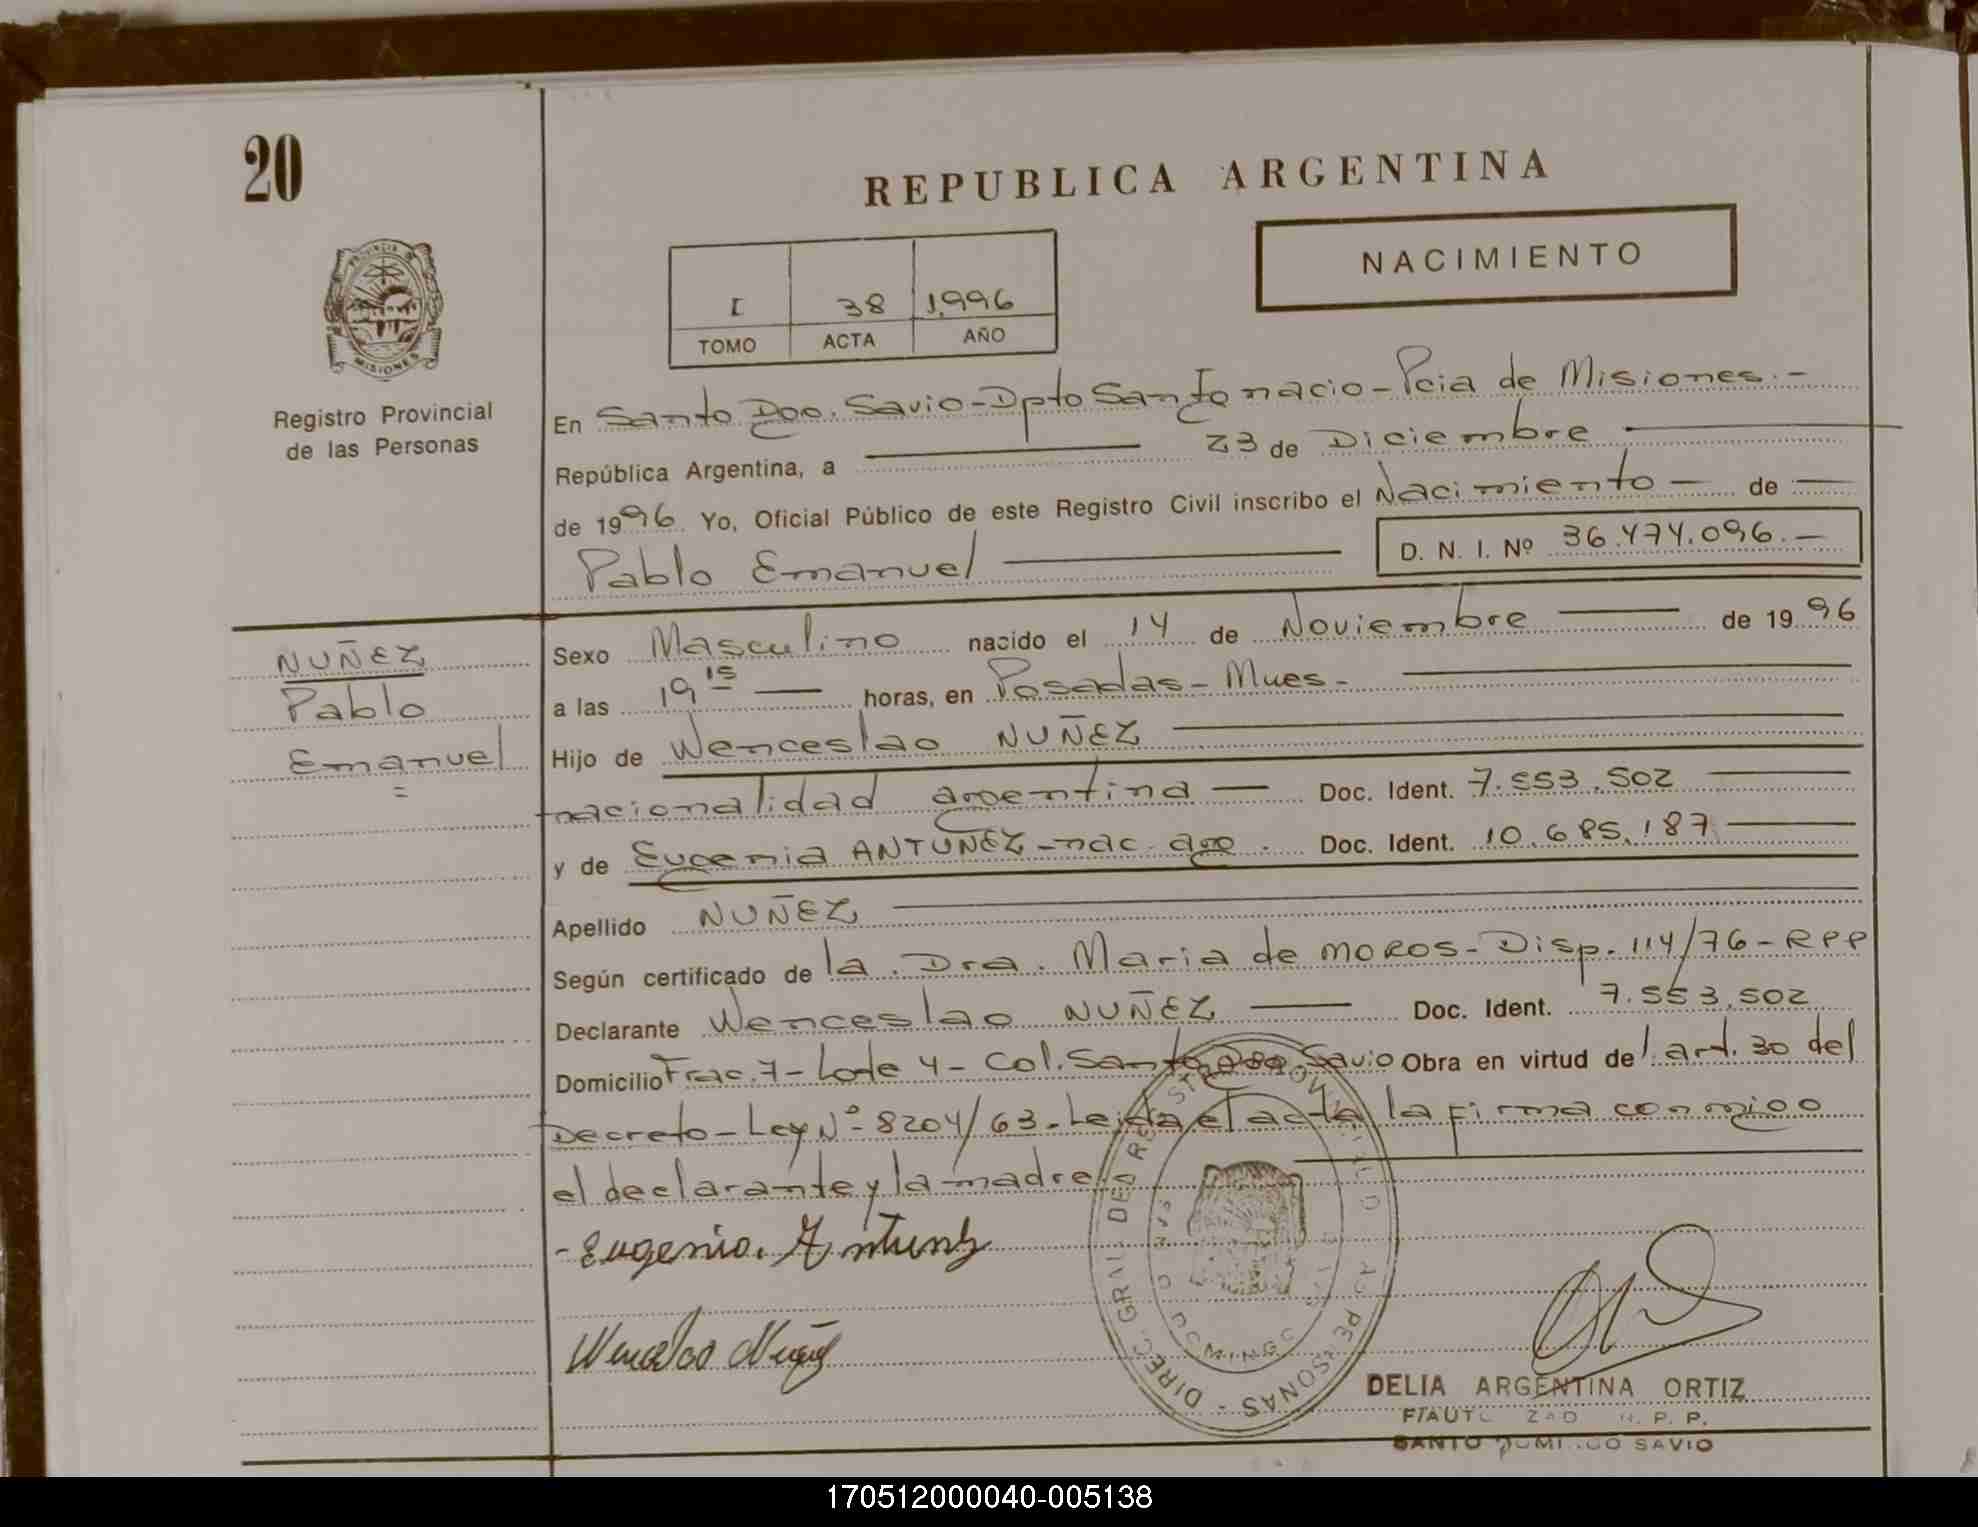 20
REPUBLICA ARGENTINA
NACIMIENTO
I 38 1.996
TOMO ACTA AÑO
PROVINCIA DE
MISIONES
Registro Provincial
de las Personas
En Santo Dgo. Savio-Dpto San Ignacio-Pcia de Misiones.-
República Argentina, a 23 de Diciembre
de 1996 Yo, Oficial Público de este Registro Civil inscribo el Nacimiento - de
Pablo Emanuel D. N. I. Nº 36.474.096.-
NUÑEZ
Pablo
Emanuel
Sexo Masculino nacido el 14 de Noviembre de 1996
a las 19 15 horas, en Posadas-Mnes-
Hijo de Wenceslao NUÑEZ
nacionalidad argentina - Doc. Ident. 7.553.502
y de Eugenia ANTUNEZ-nac. arg. Doc. Ident. 10.685.187
Apellido NUÑEZ
Según certificado de la Dra. Maria de MOROS-Disp. 114/76-RPP
Declarante Wenceslao NUÑEZ Doc. Ident. 7.553.502
Domicilio Frac. 7-Lote 4-Col. Santo Dgo Savio Obra en virtud del art. 30 del
Decreto-Ley Nº 8204/63-Leida el acta, la firma conmigo
el declarante y la madre
-Eugenia. Antunez
Wenceslao Nuñez
DIREC. GRAL. DEL REGISTRO PROVINCIAL DE LAS PERSONAS
DELIA ARGENTINA ORTIZ
R. P. P.
SANTO DOMINGO SAVIO
170512000040-005138